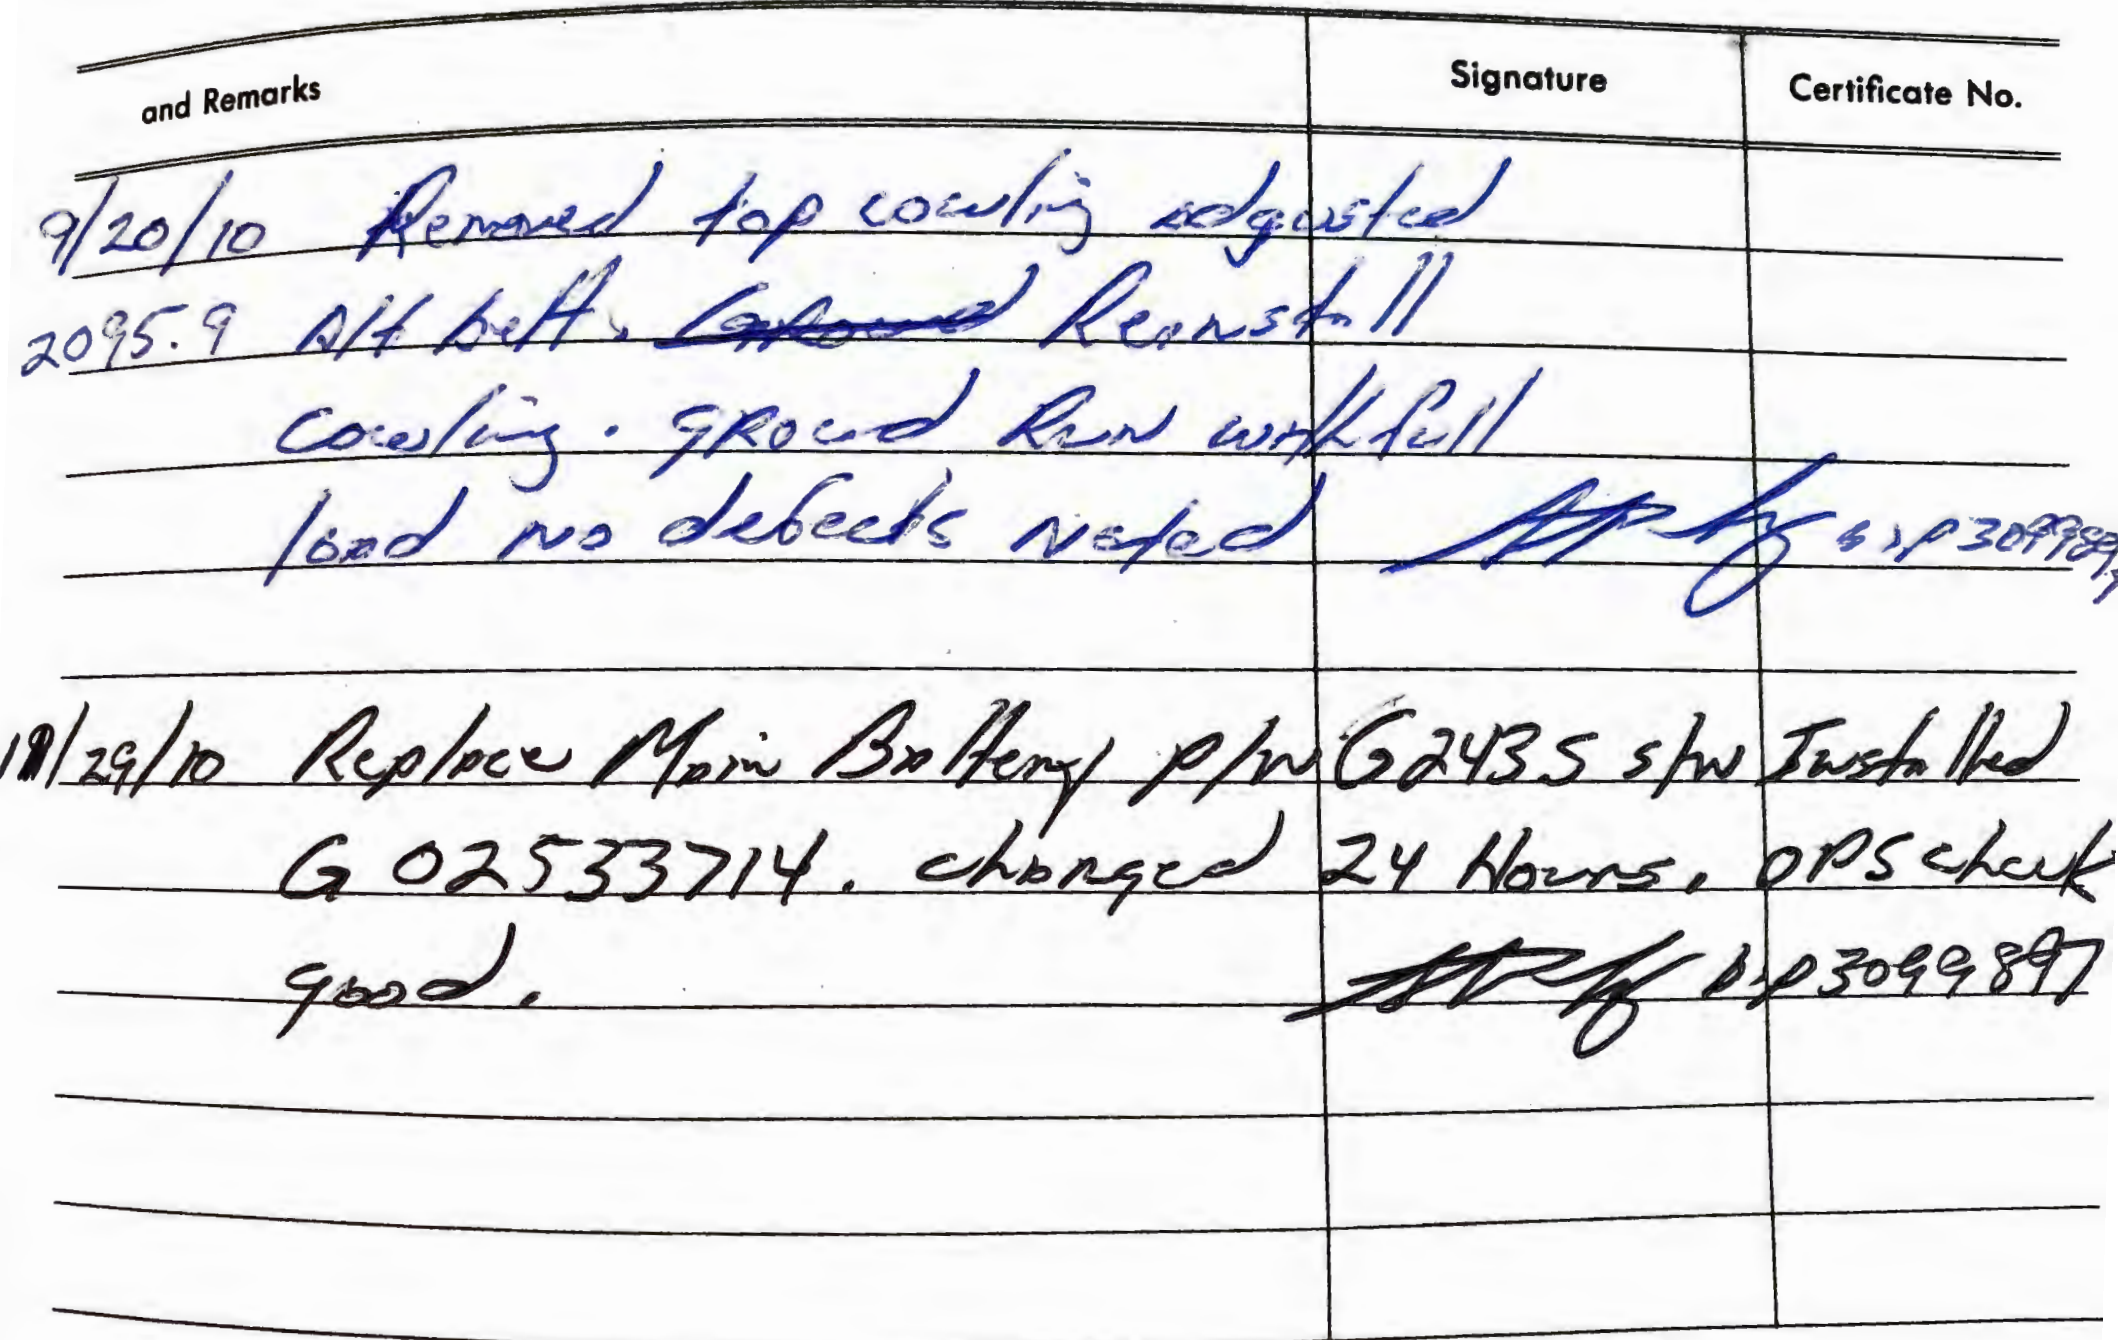 and Remarks Signature Certificate No.
9/20/10 Removed top cowling adgusted
2095.9 Alt belt. Ground Reinstall
cowling. ground Run with full
load no defects Noted
/29/10 Replace Main Battery p/n G243S s/n Installed
G02533714. changed 24 Hours. OPS check
good. A&P 3099897